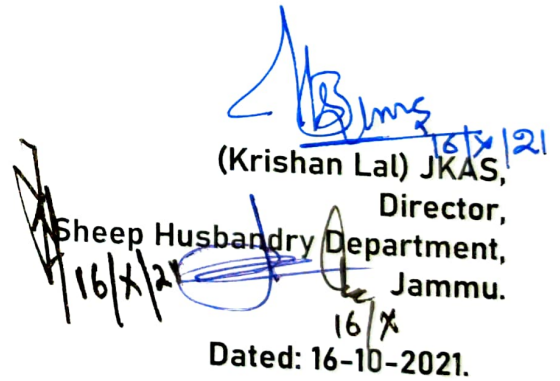 16/X/21
(Krishan Lal) JKAS,
Director,
Sheep Husbandry Department,
16/X/21
Jammu.
16/X
Dated: 16-10-2021.